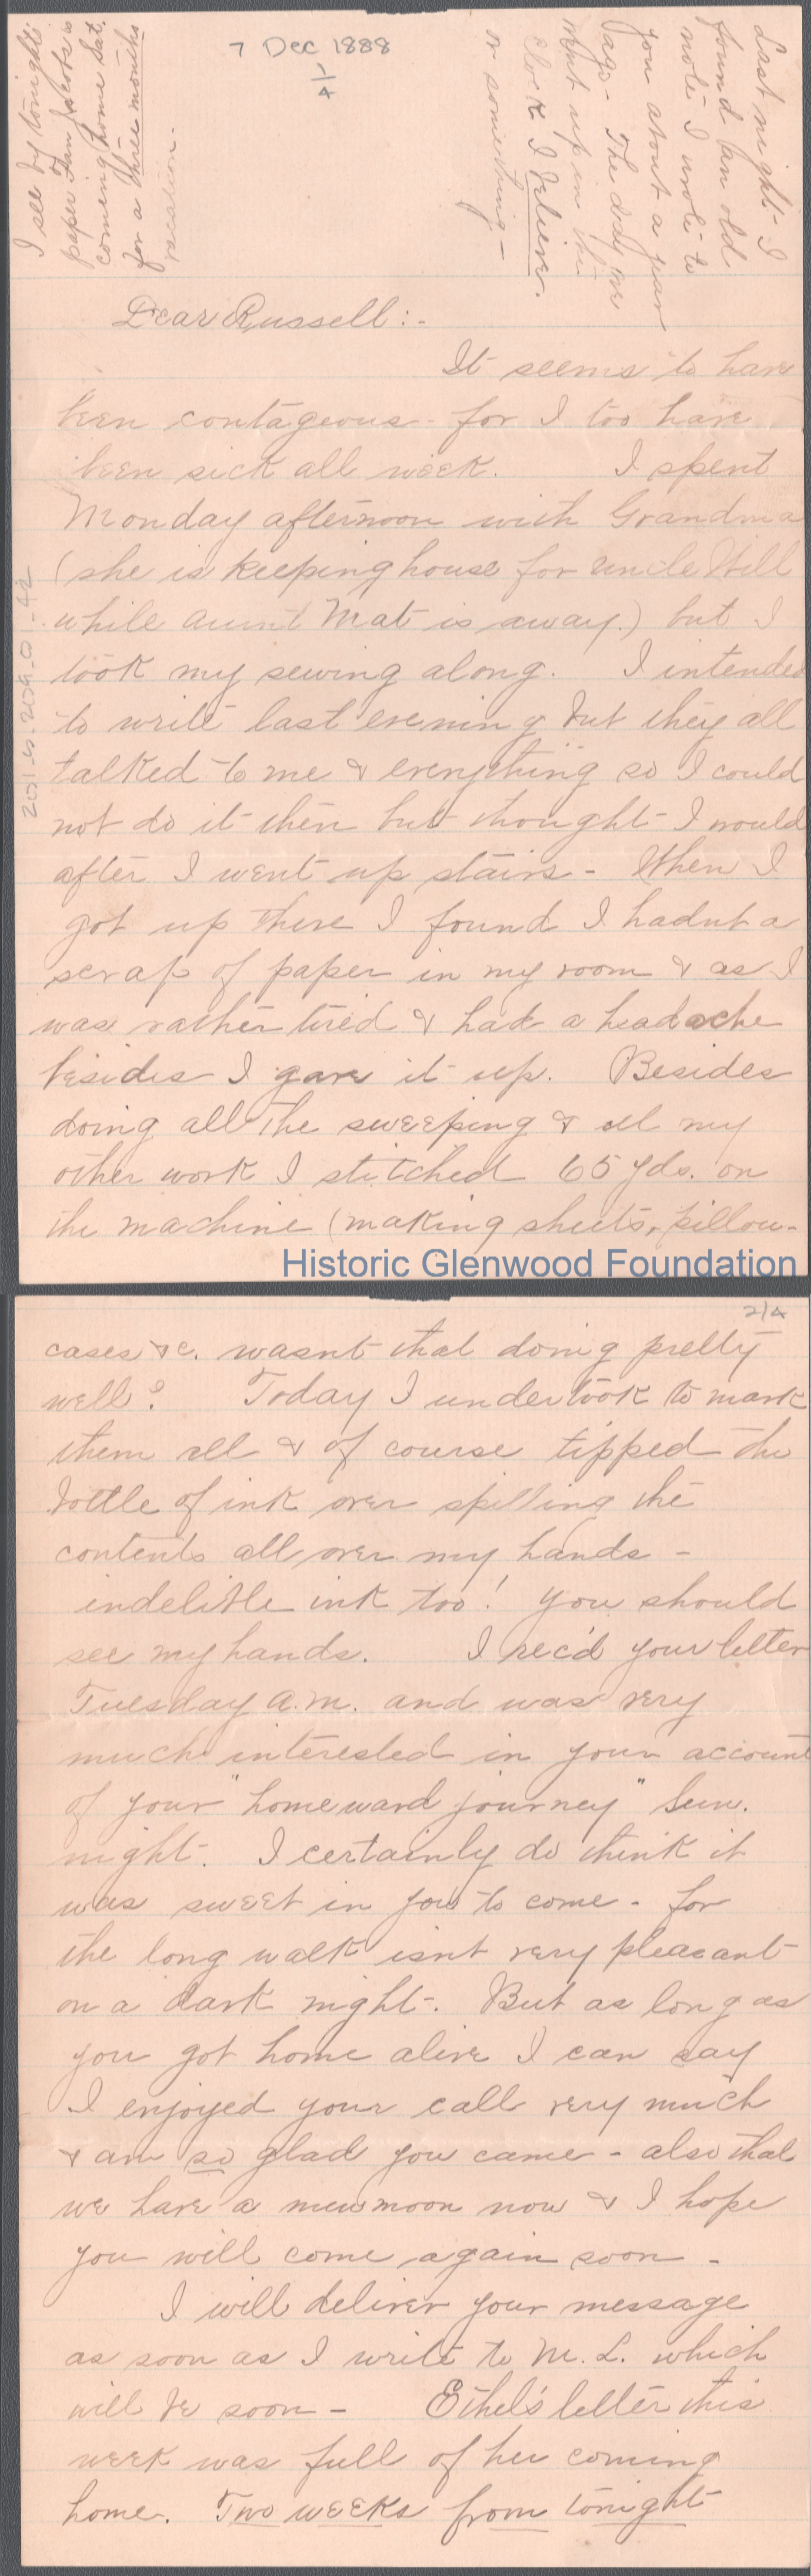 7 Dec 1888
1/4
I see by tonight's
paper Fan Jacobs is
coming home Sat.
for a three months
vacation.
Last night I
found an old
note I wrote to
you about a year
ago - The day we
went up in the
clock I believe.
or something -
Dear Russell:-
It seems to have
been contageous - for I too have
been sick all week. I spent
Monday afternoon with Grandma
(she is keeping house for Uncle Will
while Aunt Mat is away.) but I
took my sewing along. I intended
to write last evening but they all
talked to me & everything so I could
not do it then but thought I would
after I went up stairs - When I
got up there I found I hadnt a
scrap of paper in my room & as I
was rather tired & had a headache
besides I gave it up. Besides
doing all the sweeping & all my
other work I stitched 65 yds. on
the machine (making sheets, pillow-
201.s.209.01-42
Historic Glenwood Foundation
2/4
cases &c. wasnt that doing pretty
well? Today I undertook to mark
them all & of course tipped the
bottle of ink over spilling the
contents all over my hands -
indelible ink too! You should
see my hands. I rec'd your letter
Tuesday a.m. and was very
much interested in your account
of your "homeward journey" Sun.
night. I certainly do think it
was sweet in you to come - for
the long walk isnt very pleasant
on a dark night. But as long as
you got home alive I can say
I enjoyed your call very much
& am so glad you came - also that
we have a new moon now & I hope
you will come again soon -
I will deliver your message
as soon as I write to M. L. which
will be soon - Ethel's letter this
week was full of her coming
home. Two weeks from tonight